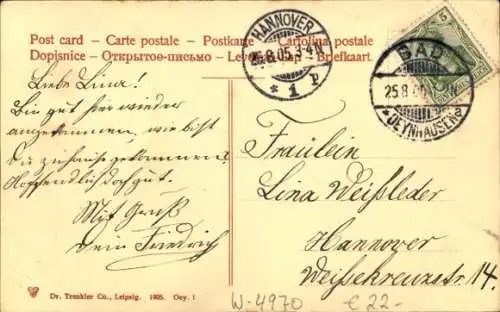 Post card - Carte postale - Postkarte - Cartolina postale
Dopisnice - Открытое-письмо - Levelezö - Briefkart.
HANNOVER
25.8.05.3-4N
* 1 P
BAD
25.8.05
* OEYNHAUSEN
5
Liebe Lina!
Bin gut hier wieder
angekommen, wie bist
Du zuhause gekommen?
Hoffendlich doch gut.
Mit Gruß
Dein Friedrich
Fräulein
Lina Weißleder
Hannover
Weissekreuzstr. 14.
Dr. Trenkler Co., Leipzig. 1905. Oey. 1
W-4970 € 22-